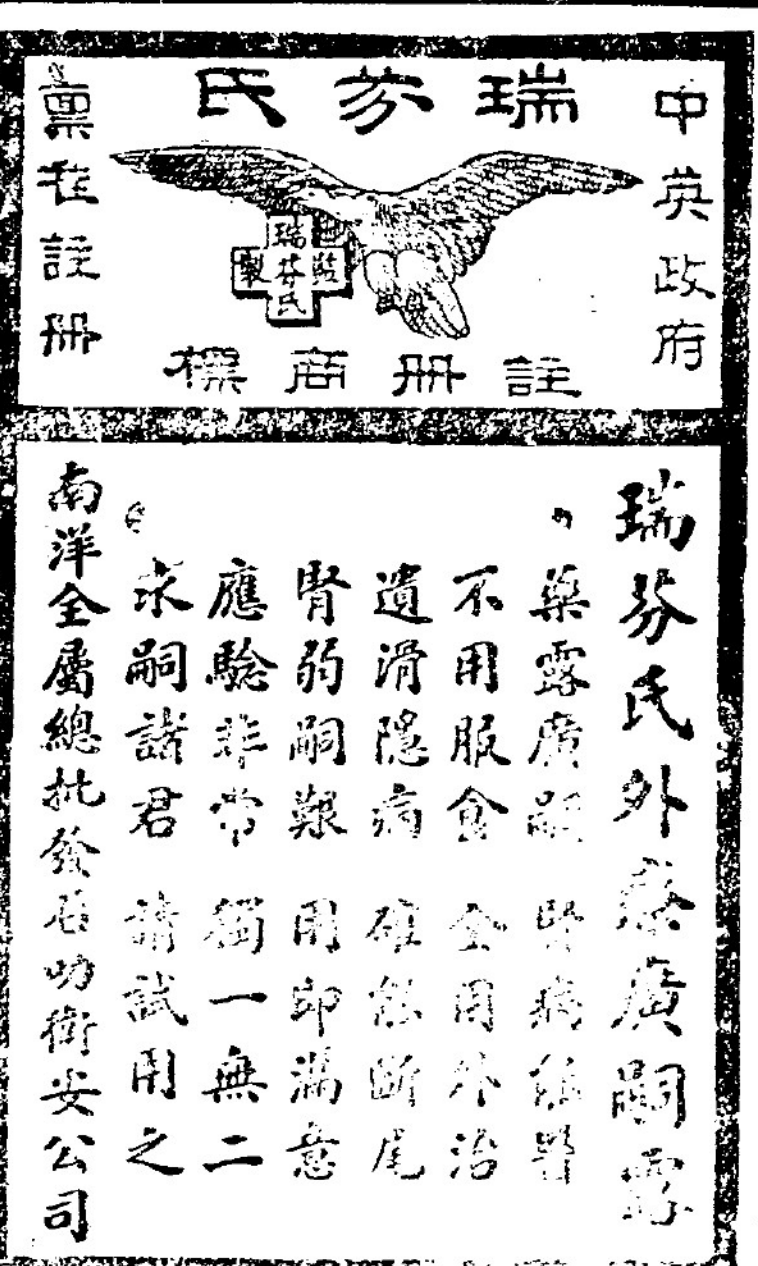 中英政府
瑞芬氏
稟准註冊
瑞芬氏
監製
註冊商標
瑞芬氏外藥廣嗣露
藥露廣嗣 腎病能醫
不用服食 全用外治
遺滑隱病 確能斷尾
腎弱嗣艱 用即滿意
應驗非常 獨一無二
求嗣諸君 請試用之
南洋全屬總批發居叻衛安公司